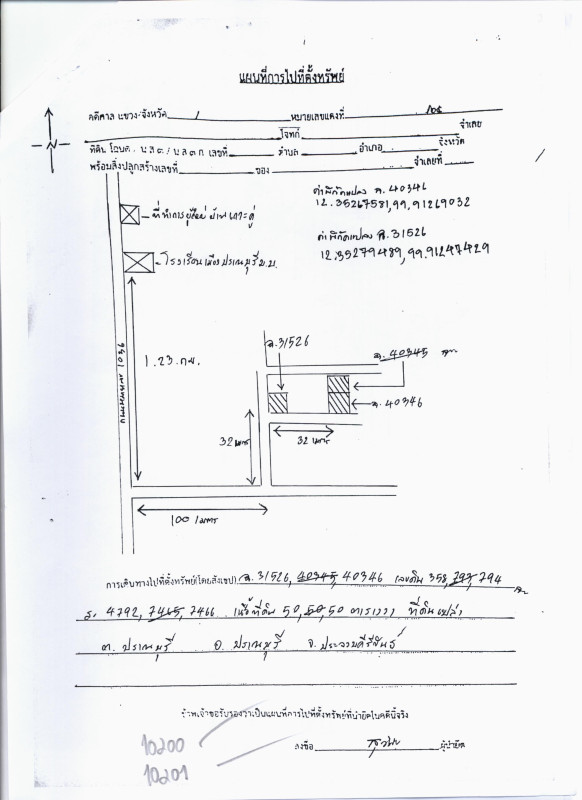 แผนที่การไปที่ตั้งทรัพย์
คดีศาล แขวง/จังหวัด / หมายเลขแดงที่
โจทก์ จำเลย
ที่ดิน โฉนด. น.ส.๓/น.ส.๓ ก. เลขที่ ตำบล อำเภอ จังหวัด
พร้อมสิ่งปลูกสร้างเลขที่ ของ จำเลยที่
N
ค่าพิกัดแปลง ฉ. 40346
12.35267581,99.91269032
ค่าพิกัดแปลง ฉ. 31526
12.35279489,99.91247429
ที่ทำการผู้ใหญ่บ้าน
โรงเรียนเมืองปราณบุรี
1036
1.23 กม.
ฉ.31526
ฉ. 40345
ฉ. 40346
32 เมตร
32 เมตร
100 เมตร
การเดินทางไปที่ตั้งทรัพย์(โดยสังเขป) ฉ. 31526, 40345, 40346 เลขดิน 358, 793, 794
ร. 4792, 7465, 7466 เนื้อที่ดิน 50, 50, 50 ตารางวา ที่ดินเปล่า
ต. ปราณบุรี อ. ปราณบุรี จ. ประจวบคีรีขันธ์
ข้าพเจ้าขอรับรองว่าเป็นแผนที่การไปที่ตั้งทรัพย์ที่นำยึดในคดีนี้จริง
ลงชื่อ ผู้นำยึด
10200
10201